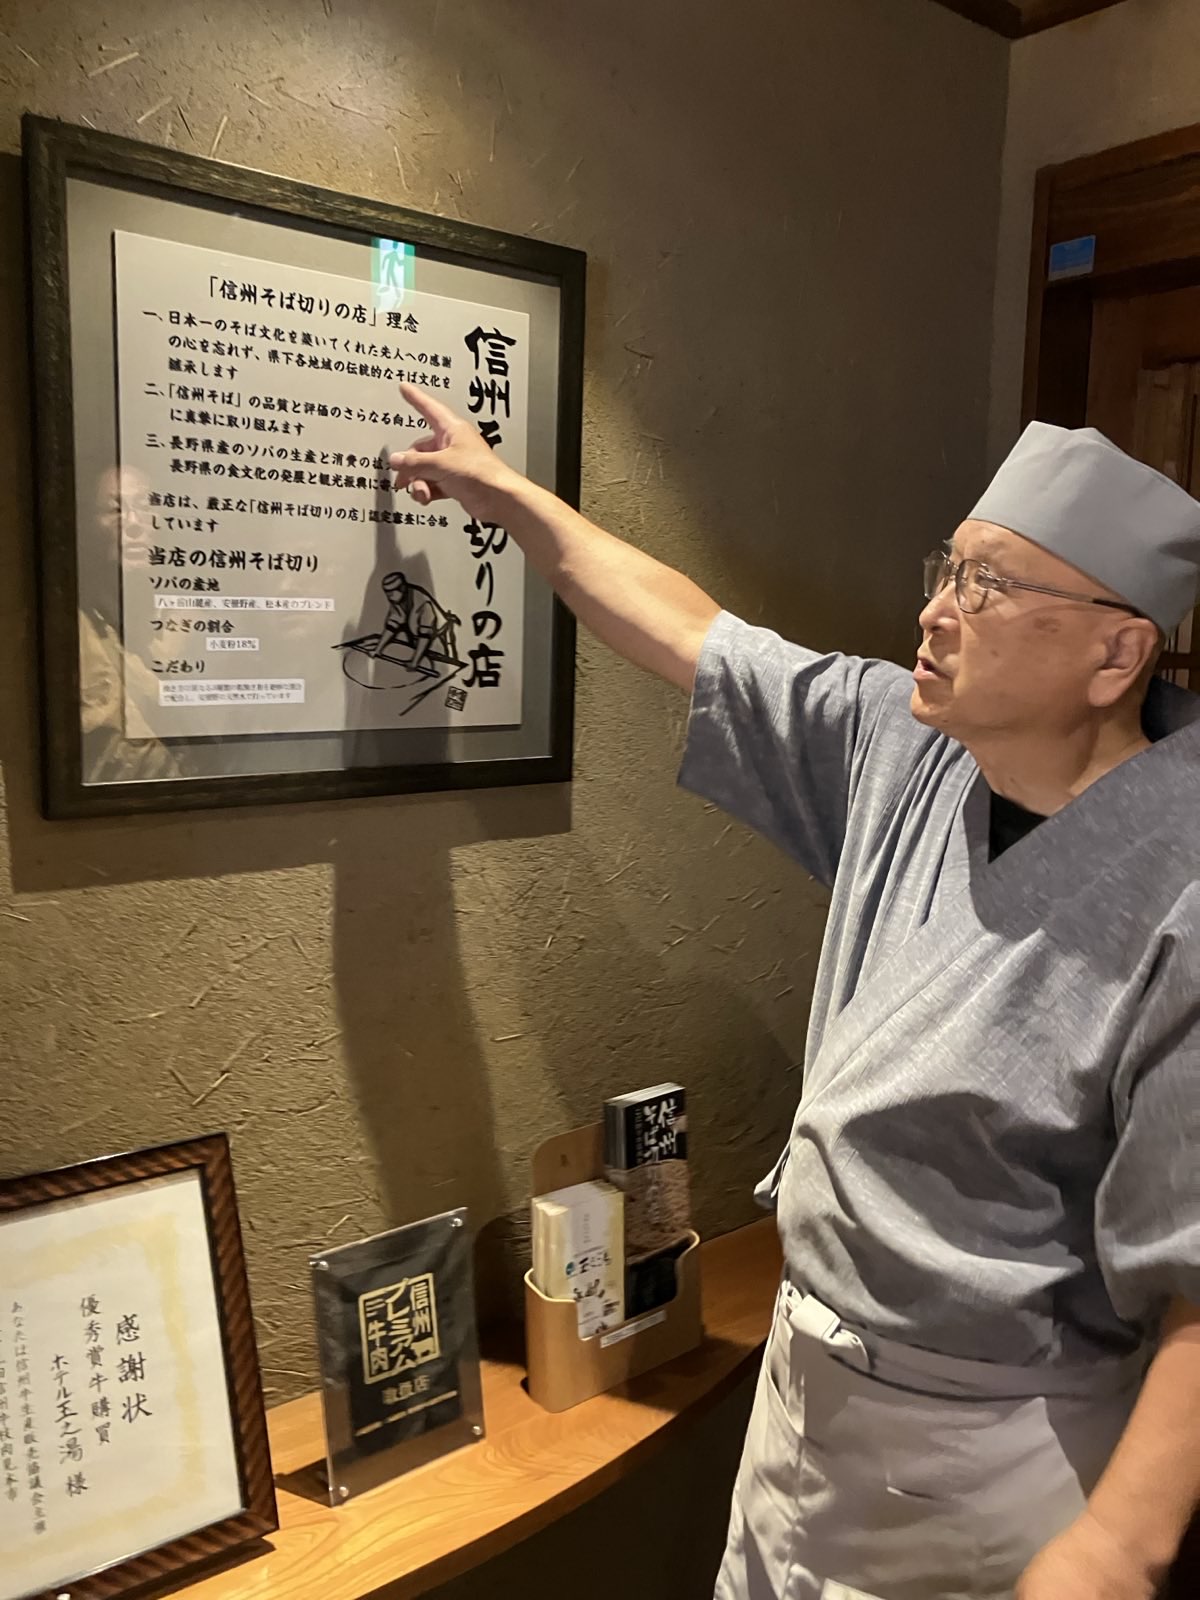 「信州そば切りの店」理念
一、日本一のそば文化を築いてくれた先人への感謝
の心を忘れず、県下各地域の伝統的なそば文化を
継承します
二、「信州そば」の品質と評価のさらなる向上の
に真摯に取り組みます
三、長野県産のソバの生産と消費の拡
長野県の食文化の発展と観光振興に寄与し
当店は、厳正な「信州そば切りの店」認定審査に合格
しています
当店の信州そば切り
ソバの産地
八ヶ岳山麓産、安曇野産、松本産のブレンド
つなぎの割合
小麦粉18%
こだわり
信州そ切りの店
信州
そば切り
信州
プレミアム
牛肉
取扱店
感謝状
優秀賞牛購買
ホテル玉之湯 様
あなたは信州牛生産販売協議会主催